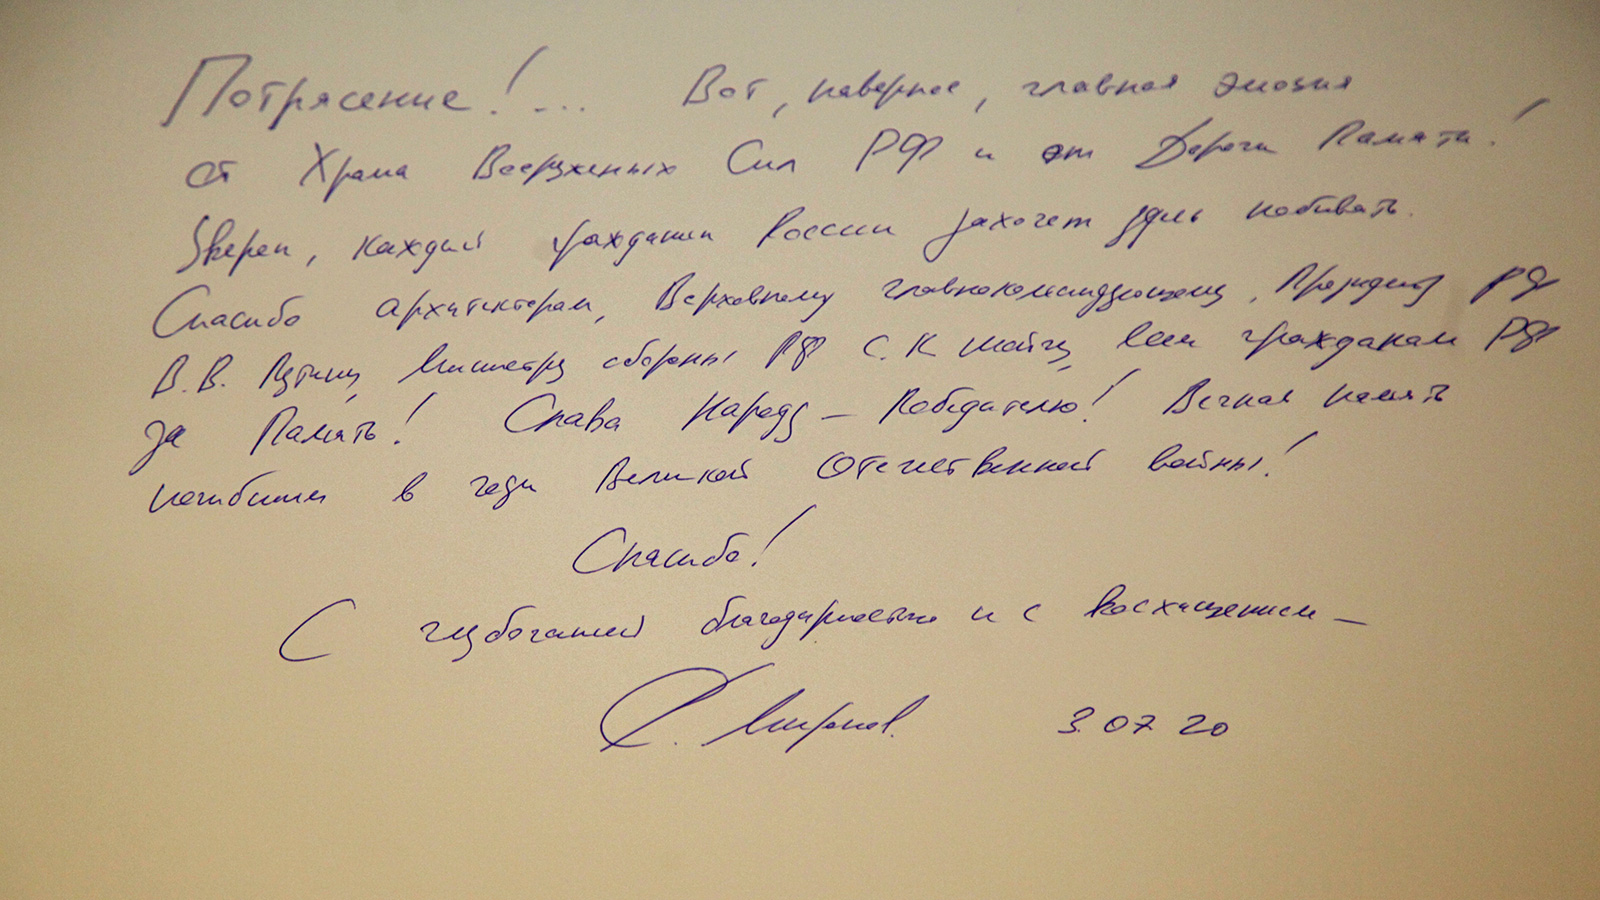 Потрясение!... Вот, наверное, главная эмоция
от Храма Вооруженных Сил РФ и от Дороги Памяти!
Уверен, каждый гражданин России захочет здесь побывать.
Спасибо архитекторам, Верховному главнокомандующему, Президенту РФ
В.В. Путину, Министру обороны РФ С.К Шойгу, всем гражданам РФ
за Память! Слава Народу – Победителю! Вечная память
погибшим в годы Великой Отечественной войны!
Спасибо!
С глубочайшей благодарностью и с восхищением –
С. Миронов. 3.07.20